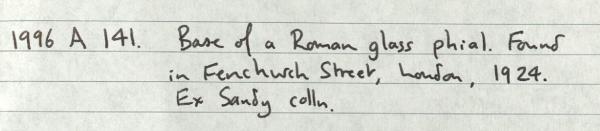 1996 A 141. Base of a Roman glass phial. Found
in Fenchurch Street, London, 1924.
Ex Sandy colln.